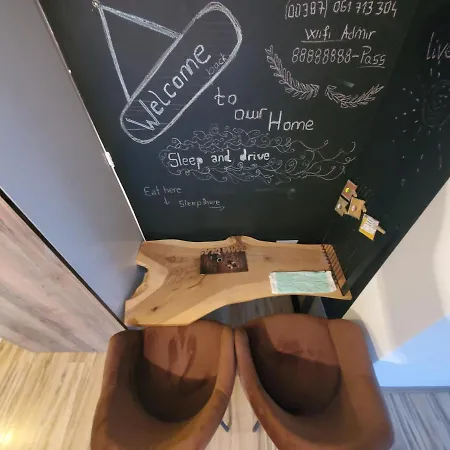 (00387) 061 713 304
Wifi Admir
88888888-Pass
Welcome
back
to
our
Home
Sleep and drive
Eat here
Sleep there
live